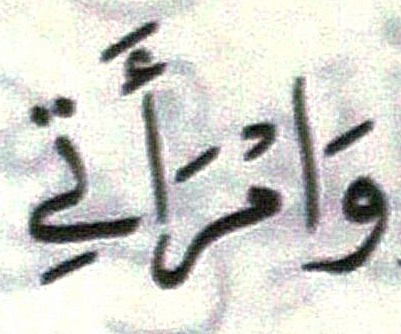 وَامْرَأَتِي